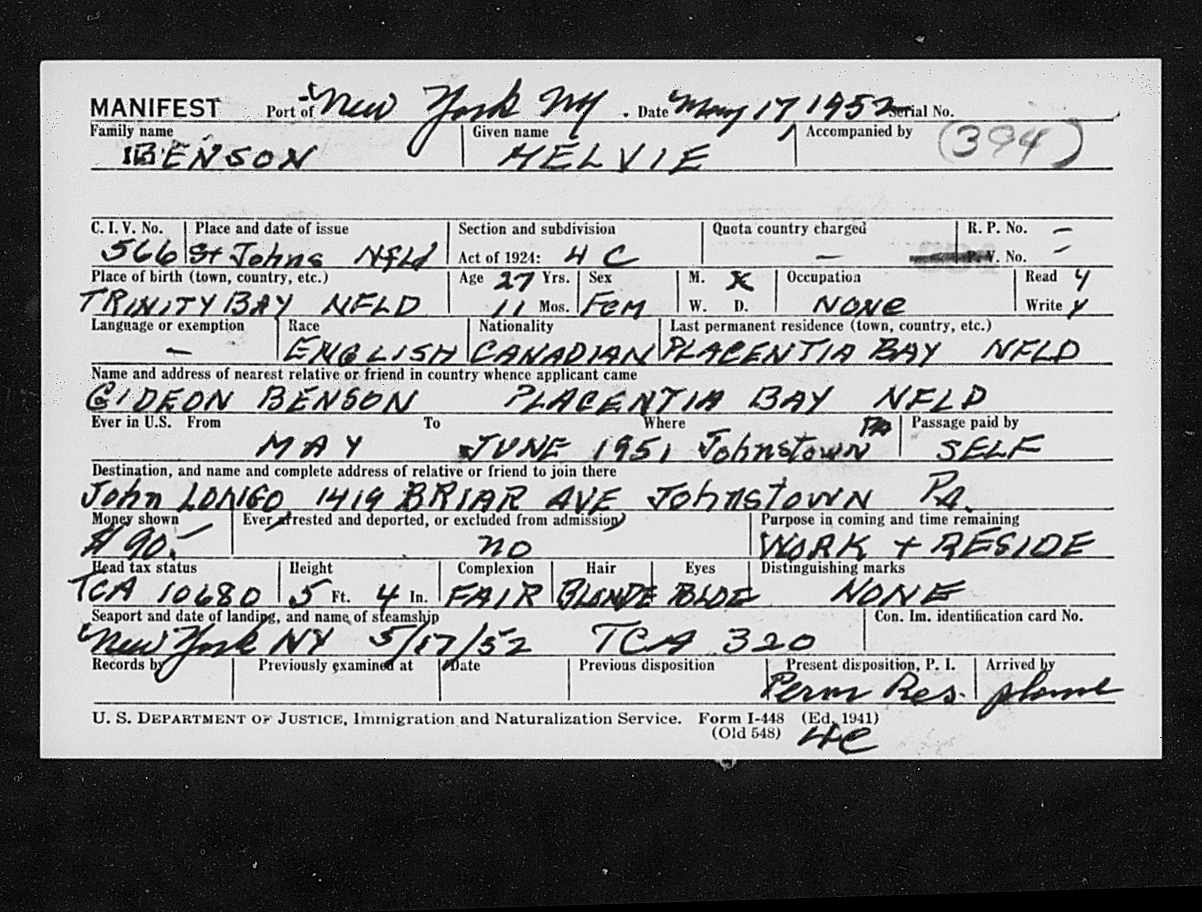 MANIFEST Port of New York NY. Date May 17 1952 Serial No.
Family name Given name Accompanied by (394)
BENSON MELVIE
C. I. V. No. Place and date of issue Section and subdivision Quota country charged R. P. No. –
566 St Johns NFLd Act of 1924: 4 C – P. V. No. –
Place of birth (town, country, etc.) Age 27 Yrs. Sex M. X Occupation Read y
TRINITY BAY NFLD 11 Mos. Fem W. D. NONE Write y
Language or exemption Race Nationality Last permanent residence (town, country, etc.)
– ENGLISH CANADIAN PLACENTIA BAY NFLD
Name and address of nearest relative or friend in country whence applicant came
GIDEON BENSON PLACENTIA BAY NFLD
Ever in U.S. From To Where Passage paid by
MAY JUNE 1951 Johnstown PA SELF
Destination, and name and complete address of relative or friend to join there
John LONGO 1419 BRIAR AVE Johnstown Pa.
Money shown Ever arrested and deported, or excluded from admission Purpose in coming and time remaining
$90.– no WORK + RESIDE
Head tax status Height Complexion Hair Eyes Distinguishing marks
TCA 10680 5 Ft. 4 In. FAIR BLONDE BLUE NONE
Seaport and date of landing, and name of steamship Con. Im. identification card No.
New York NY 5/17/52 TCA 320
Records by Previously examined at Date Previous disposition Present disposition, P. I. Arrived by
Perm Res. plane
U. S. DEPARTMENT OF JUSTICE, Immigration and Naturalization Service. Form I-448 (Ed. 1941)
(Old 548) 4C